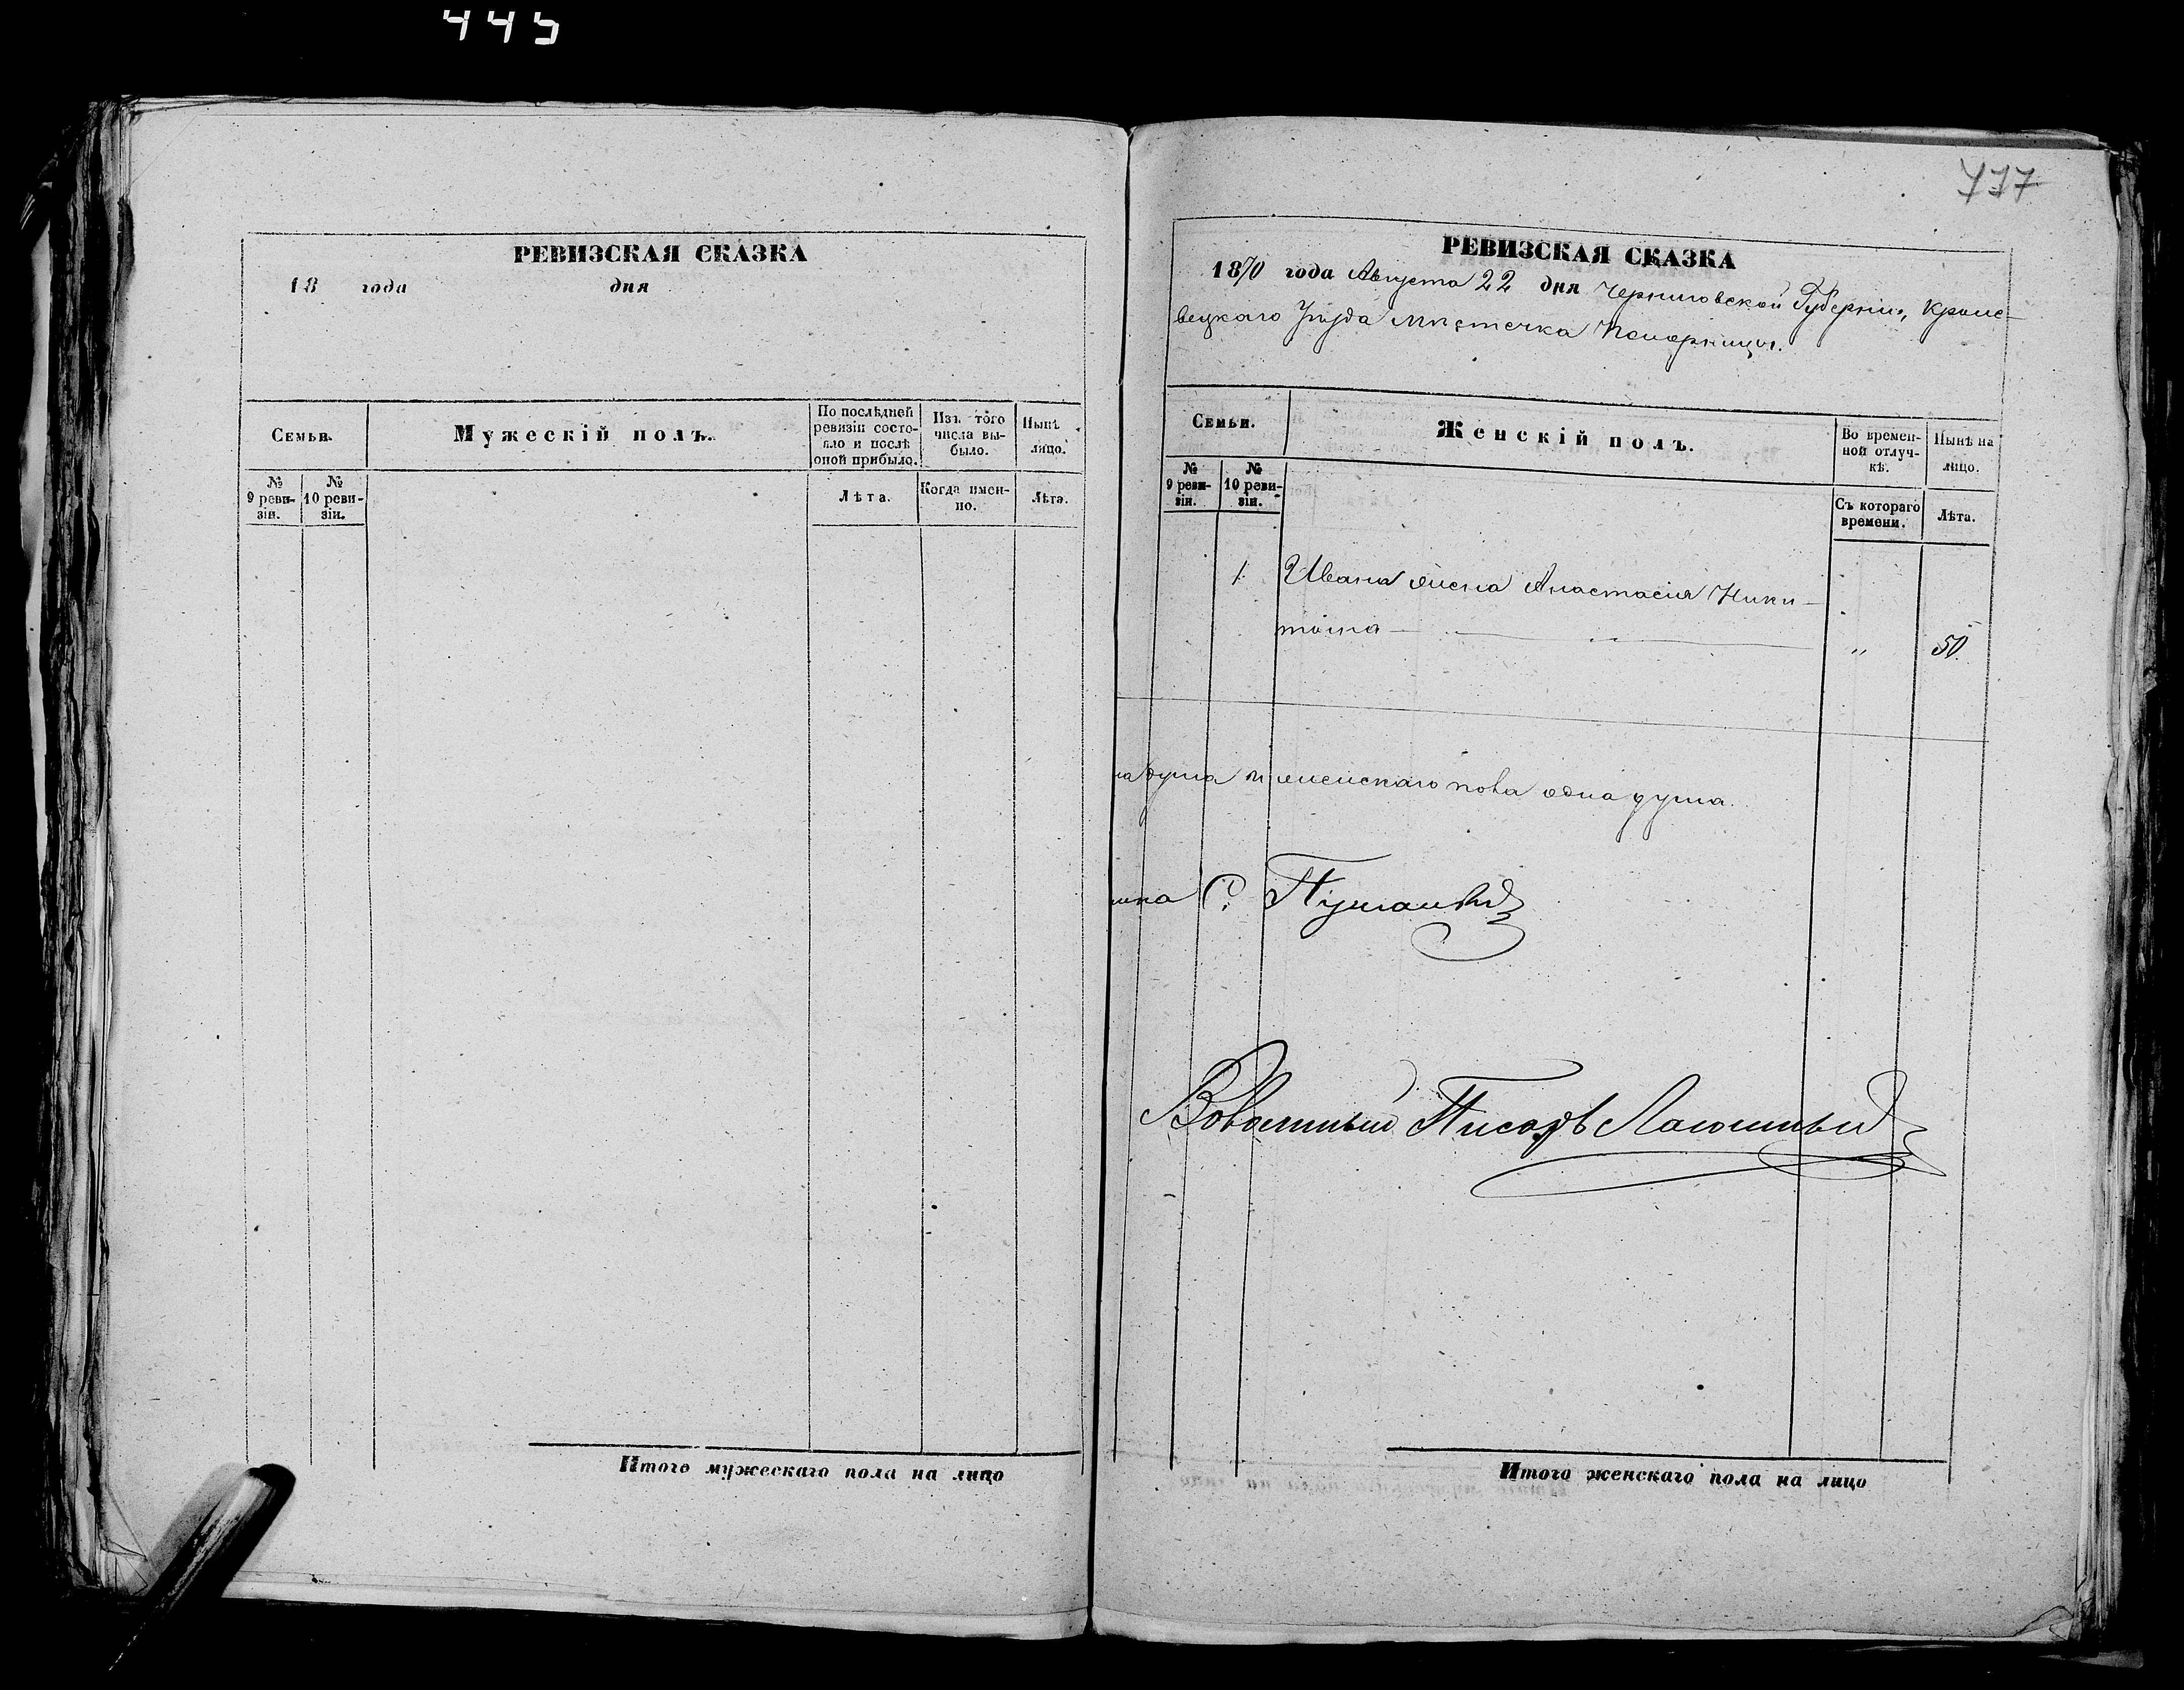 445
РЕВИЗСКАЯ СКАЗКА
18 года дня
Семьи.
Мужескій полъ.
По послѣдней ревизіи состояло и послѣ оной прибыло.
Изъ того числа выбыло.
Нынѣ лицо.
№ 9 ревизіи.
№ 10 ревизіи.
Лѣта.
Когда именно.
Лѣта.
Итого мужескаго пола на лицо
РЕВИЗСКАЯ СКАЗКА
1870 года Августа 22 дня Черниговской Губерніи, Кроле-
вецкаго Уѣзда Мѣстечка Понорницы.
Семьи.
Женскій полъ.
Во времен-
ной отлуч-
кѣ.
Нынѣ на
лицо.
№ 9 реви-
зіи.
№ 10 реви-
зіи.
Съ котораго
времени.
Лѣта.
1 Ивана жена Анастасія Ники-
тина " 50.
на душа и женскаго пола одна душа.
С.
Волостный Писарь
Итого женскаго пола на лицо